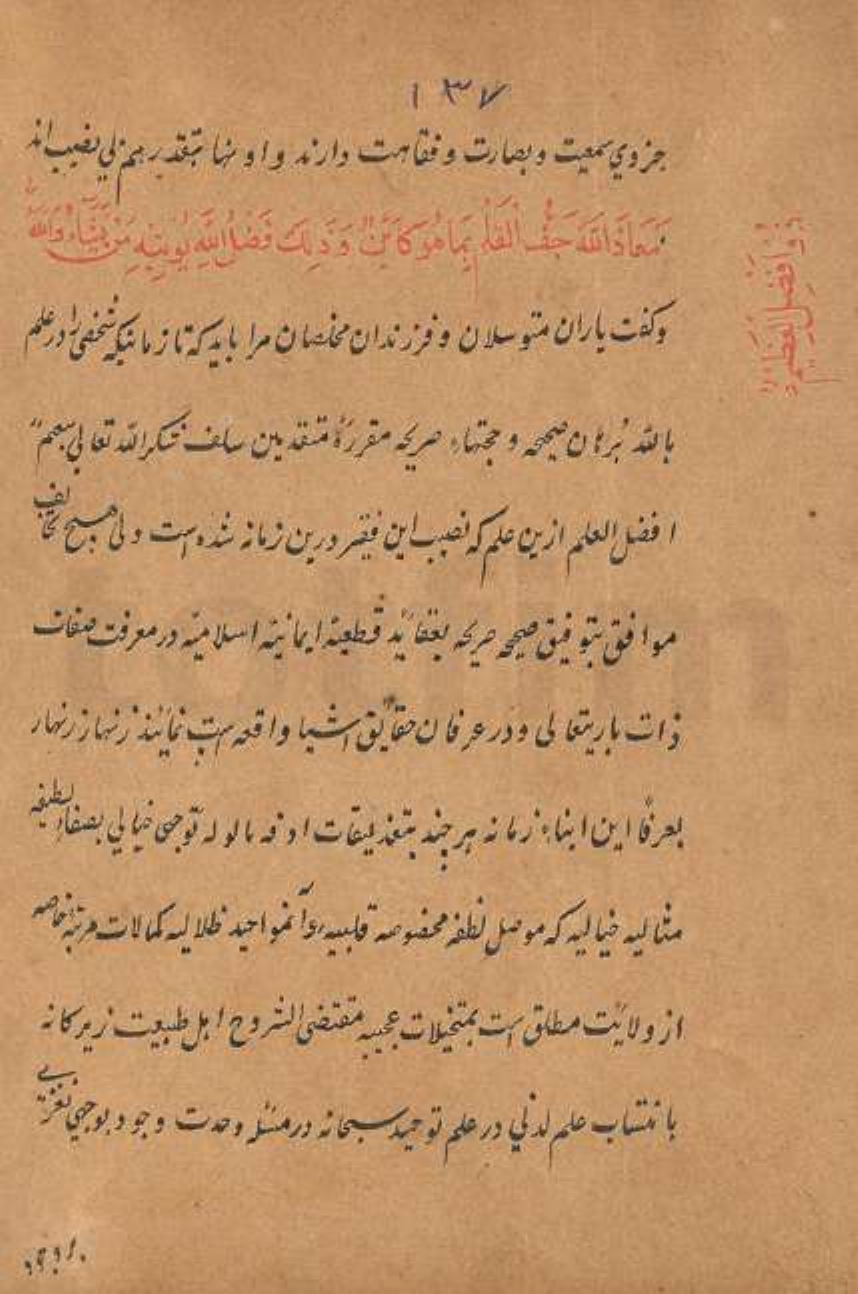 ۱۳۷
جزوی سمعیت و بصارت و فقاهت دارند و اونها بتقدیر هم بی نصیب اند
مَعَاذَ اللّٰه جَفَّ الْقَلَمُ بِمَا هُوَ كَائِنٌ وَ ذٰلِكَ فَضْلُ اللّٰهِ يُؤتِيْهِ مَنْ يَّشَاءُ وَاللّٰهُ
ذو الفضل العظیم
وگفت یاران متوسلان و فرزندان مخلصان مرا باید که تا زمانیکه شخصی را در علم
بالله بُرهان صحیحه و حجتهاء صریحه مقررهٔ متقدمین سلف شکر الله تعالی سعیهم
افضل العلم ازین علم که نصیب این فقیر درین زمانه شده است ولی هیچ تخالف
موافق بتوفیق صحیحه صریحه بعقاید قطعیه ایمانیه اسلامیه در معرفت صفات
ذات باریتعالی و در عرفان حقایق اشیا واقعه است نمایند زنهار زنهار
بعرفاً این ابناء زمانه هرچند بتعذیقات توجهی خیالی بصفاء لطیفه
مثالیه خیالیه که موصل لطفه مخصوصه قلبیه ظلالیه کمالات مرتبه خاصه
از ولایت مطلق است بمتخیلات عجیبه مقتضی الشروح اهل طبیعت زیرکانه
بانتساب علم لدنی در علم توحید سبحانه در مسئله وحدت وجود بوجهی